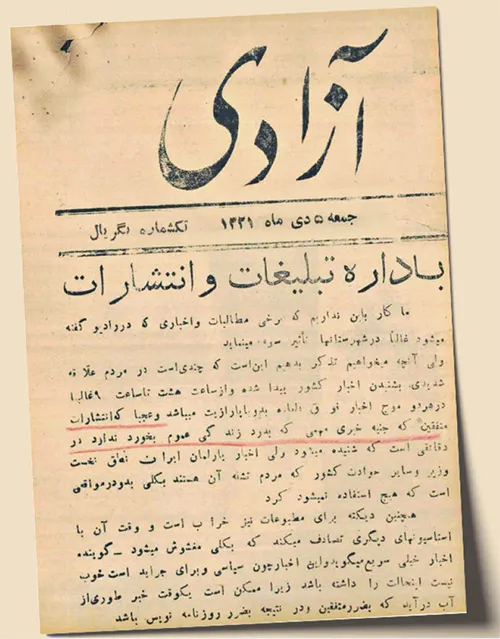 آزادی
جمعه ۵ دی ماه ۱۳۳۱ تکشماره یکریال
باداره تبلیغات و انتشارات
ما کار باین نداریم که برخی مطالبات واخباری که دررادیو گفته
میشود غالباً درشهرستانها تأثیر سوء مینماید
ولی آنچه میخواهیم تذکر بدهیم این‌است که چندی‌است در مردم علاقه
شدیدی بشنیدن اخبار کشور پیدا شده وازساعت هشت تاساعت ۹غالباً
درهردو موج اخبار فوق یاپارازیت میباشد وعجبا که‌انتشارات
متفقین که جنبه خبری مهمی که بدرد زندگی عموم بخورد ندارد در
دقائقی است که شنیده میشود ولی اخبار پارلمان ایران نطق نخست
وزیر وسایر حوادث کشور که مردم تشنه آن هستند بکلی بدودرمواقعی
است که هیچ استفاده نمیشود کرد
همچنین دیکته برای مطبوعات نیز خراب است و وقت آن با
استاسیونهای دیگری تصادف میکند که بکلی مغشوش میشود ـ گوینده
اخبار خیلی سریع میگویدواین اخبارچون سیاسی وبرای جراید است خوب
نیست اینحالت را داشته باشد زیرا ممکن است یکوقت خبر طوری‌از
آب درآید که بضررمتفقین ودر نتیجه بضرر روزنامه نویس باشد